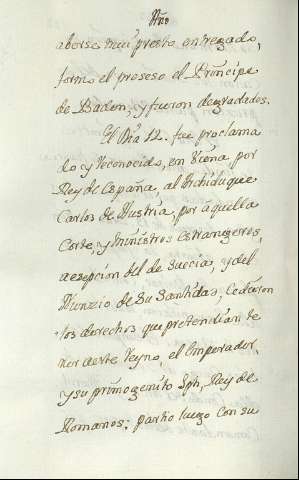 Año
aborse mui presto entregado,
formo el proseso el Principe
de Baden, y fueron degradados.
El Dia 12. fue proclama
do y reconocido, en Viena por
Rey de España, al Archiduque
Carlos de Austria, por aquella
Corte, y Ministros estrangeros,
a esepcion del de Suecia, y del
Nunzio de Su Santidad, Cedieron
los derechos que pretendian te
ner a este Reyno, el Emperador,
y su primogenito Jph, Rey de
Romanos; partio luego con su